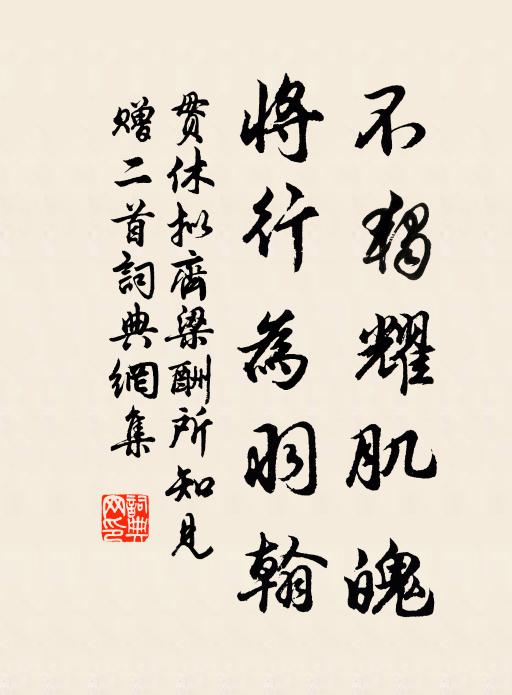 不獨耀肌魄
將行為羽翰
貫休拟齊梁酬所知見
贈二首詞典網集
詞典網印